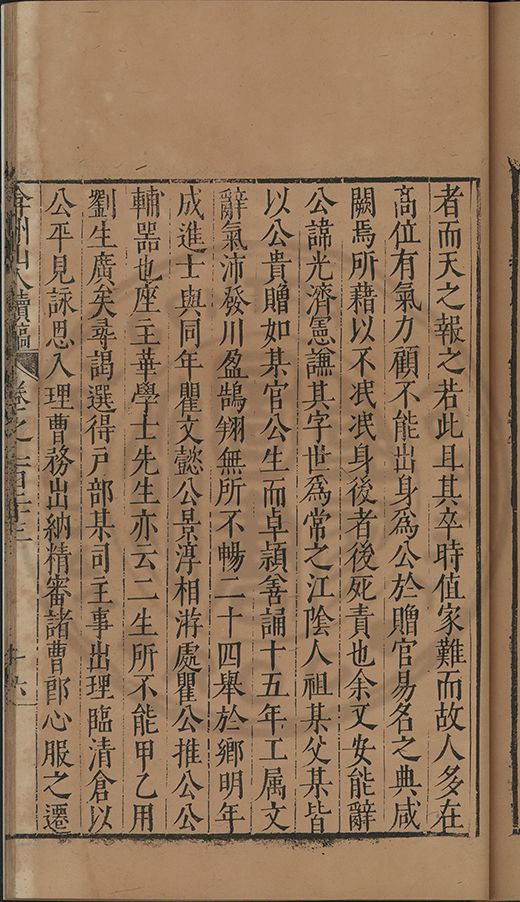 者而天之報之若此且其卒時值家難而故人多在
高位有氣力顧不能出身為公於贈官易名之典咸
闕焉所藉以不冺冺身後者後死責也余又安能辭
公諱光濟憲謙其字世為常之江陰人祖某父某皆
以公貴贈如某官公生而卓頴善誦十五年工属文
辭氣沛發川盈鵠翔無所不暢二十四舉於鄉明年
成進士與同年瞿文懿公景淳相游處瞿公推公公
輔噐也座主華學士先生亦云二生所不能甲乙用
劉生廣矣尋謁選得戶部某司主事出理臨清倉以
公平見詠思入理曹務出納精審諸曹郎心服之遷
弇州山人續稿 卷之一百三十三 十六